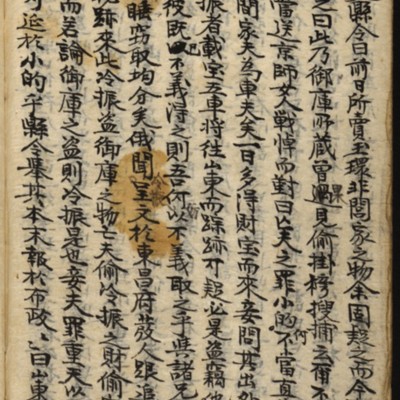 縣令曰前日所賣玉環非閻家之物余固疑之而今
之曰此乃御庫所藏曾遇見偷掛榜搜捕之 不
當送京師女大戰悼而對曰亡夫之罪小的不當直
閻家夫為車夫矣一日多得財宝而來妾問其出
振者載宝五車將往山東而踪跡可疑必果盜竊他
彼既 不義得之則吾何以不義取之乎與諸兄
睡窃取均分矣俄聞呈文於東昌府發人跟追
跡來此冷振盜御庫之物亡夫偷冷振之財偷
而若論御庫之盜則冷振是也妾夫罪重天以
可近於小的乎縣令舉其本末報於布政〻曰山東